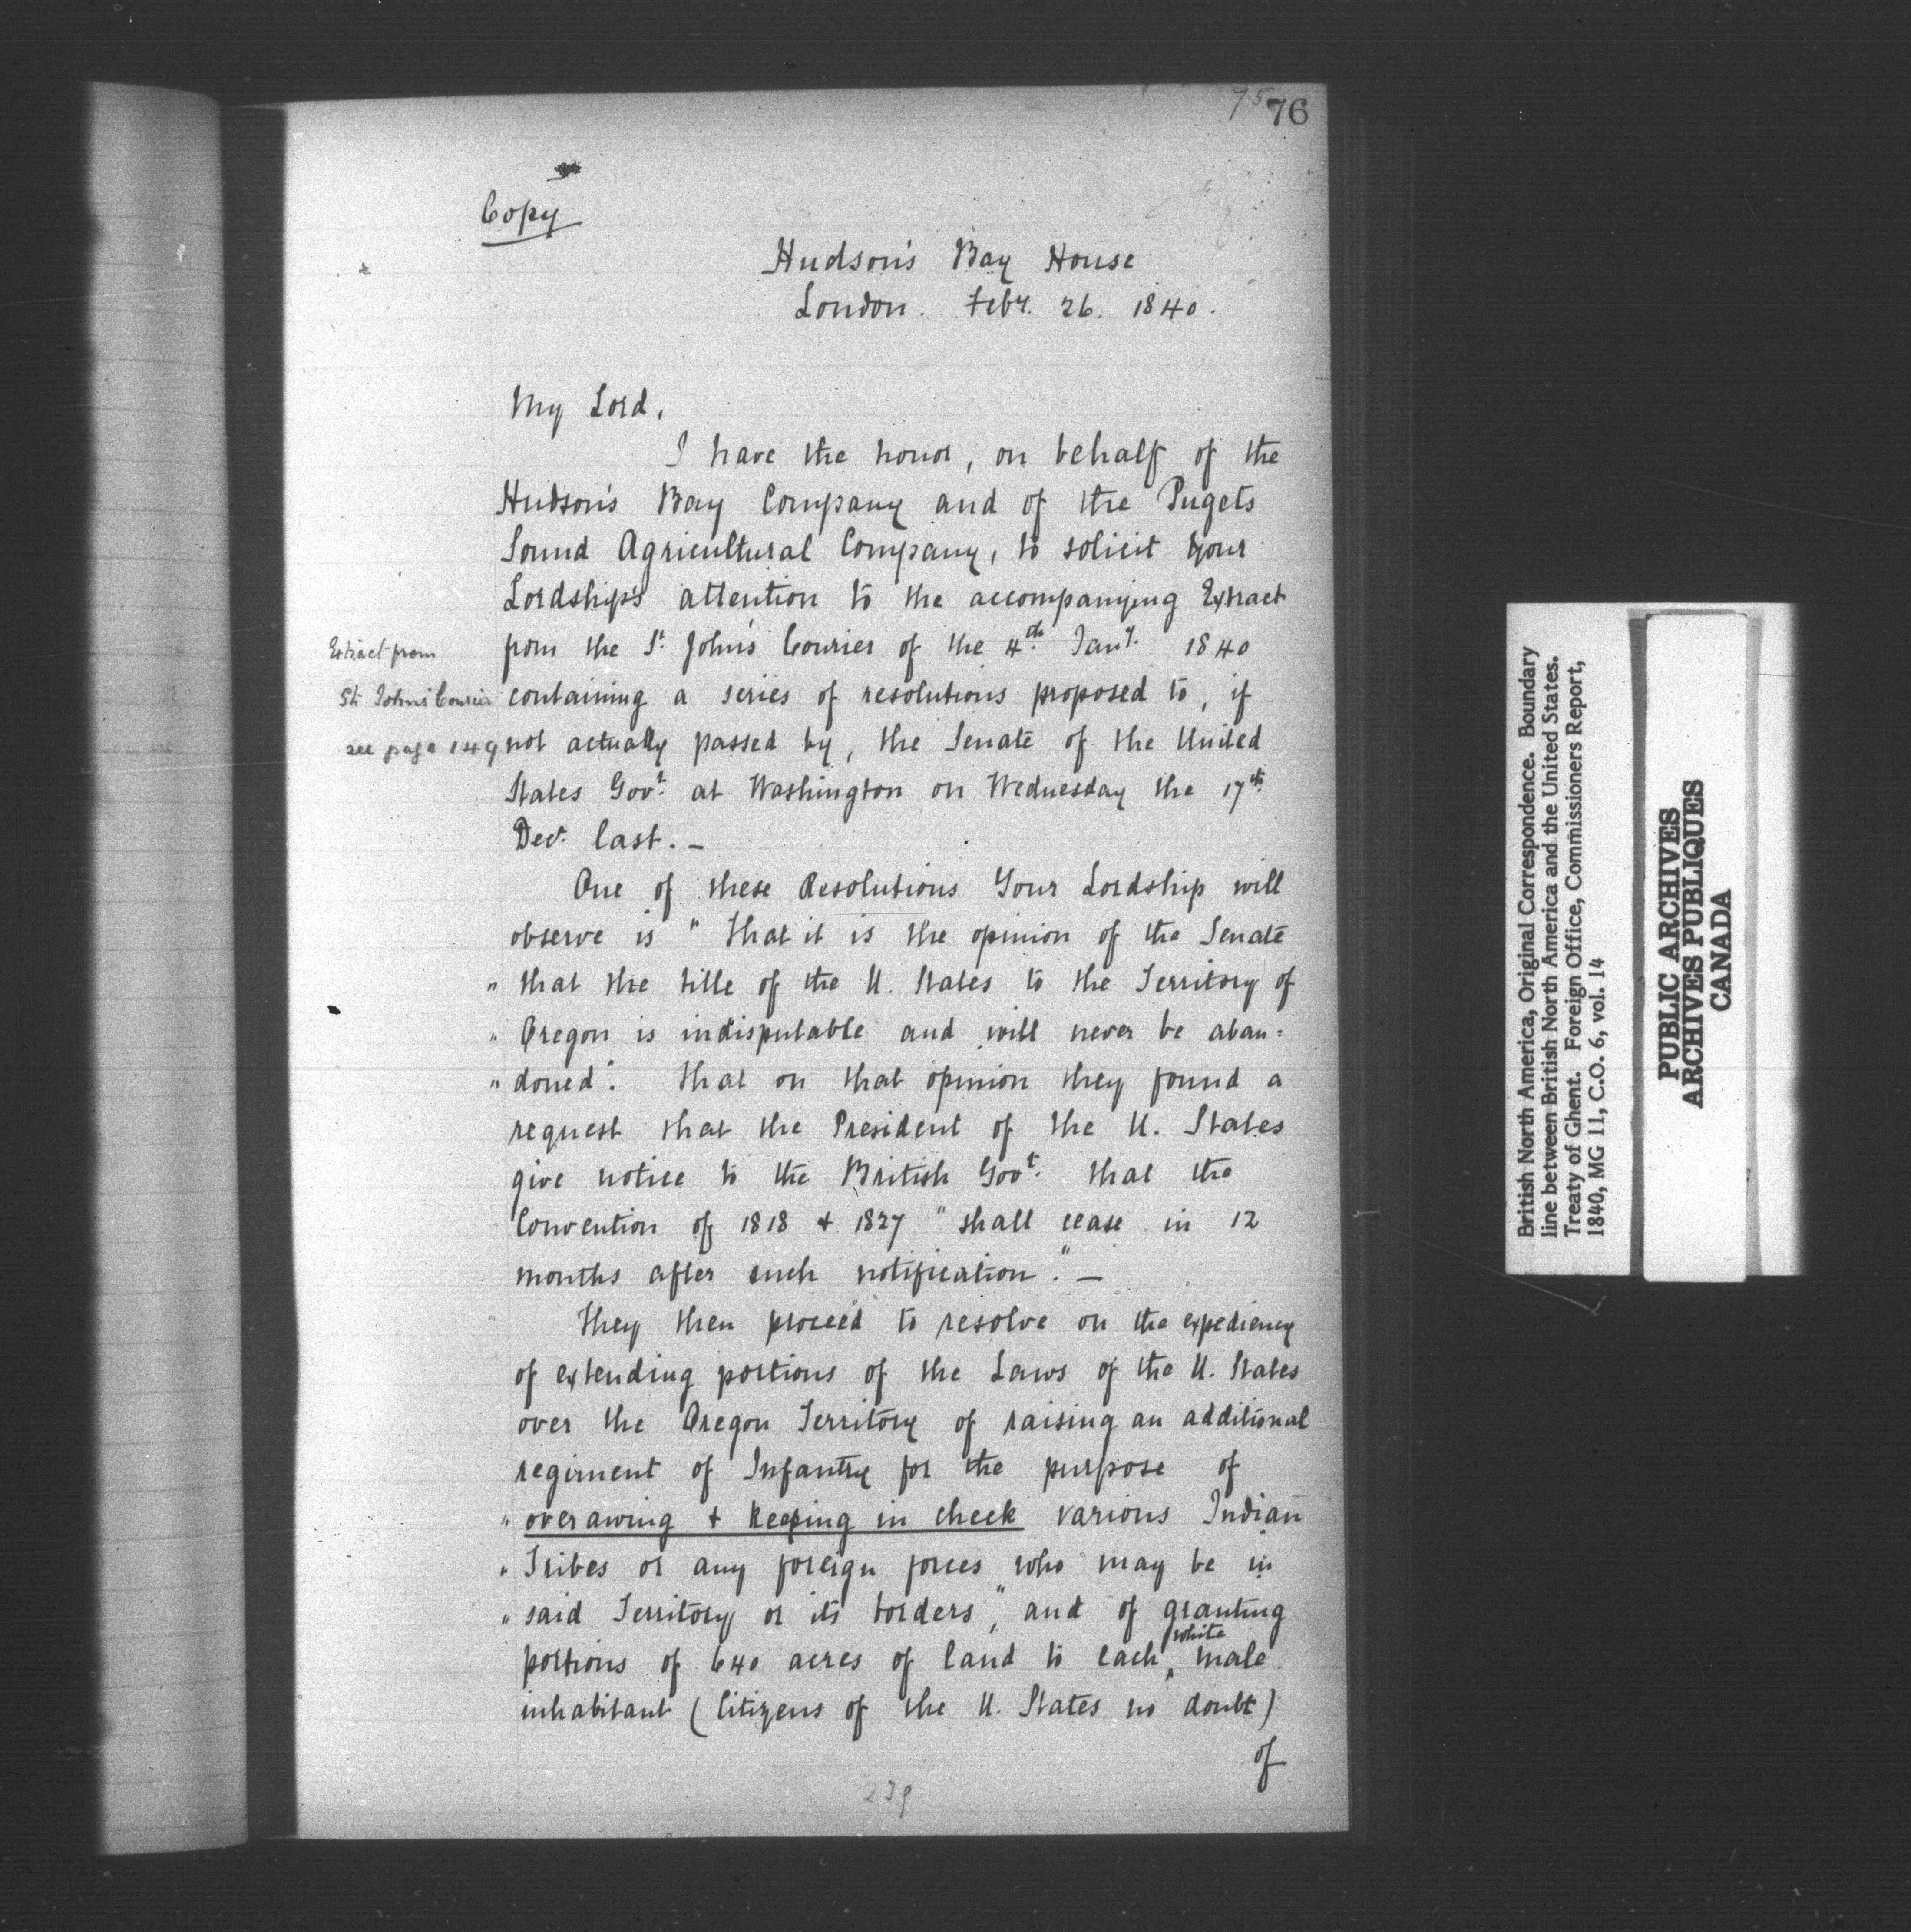 75 76
Copy
Hudson's Bay House
London. Feby. 26. 1840.
My Lord,
I have the honor, on behalf of the
Hudson's Bay Company and of the Pugets
Sound Agricultural Company, to solicit your
Lordship's attention to the accompanying Extract
from the St. John's Courier of the 4th. Jany. 1840
containing a series of resolutions proposed to, if
not actually passed by, the Senate of the United
States Govt. at Washington on Wednesday the 17th.
Decr. last. —
Extract from
St. John's Courier
see page 149
One of these Resolutions Your Lordship will
observe is "that it is the opinion of the Senate
" that the title of the U. States to the Territory of
" Oregon is indisputable and will never be aban=
" doned". that on that opinion they found a
request that the President of the U. States
give notice to the British Govt. that the
Convention of 1818 & 1827 "shall cease in 12
months after such notification." —
They then proceed to resolve on the expediency
of extending portions of the Laws of the U. States
over the Oregon Territory of raising an additional
regiment of Infantry for the purpose of
" overawing & keeping in check various Indian
" Tribes or any foreign forces who may be in
" said Territory or its borders", and of granting
portions of 640 acres of land to each white male
inhabitant (Citizens of the U. States no doubt)
of
239
British North America, Original Correspondence. Boundary
line between British North America and the United States.
Treaty of Ghent. Foreign Office, Commissioners Report,
1840, MG 11, C.O. 6, vol. 14
PUBLIC ARCHIVES
ARCHIVES PUBLIQUES
CANADA